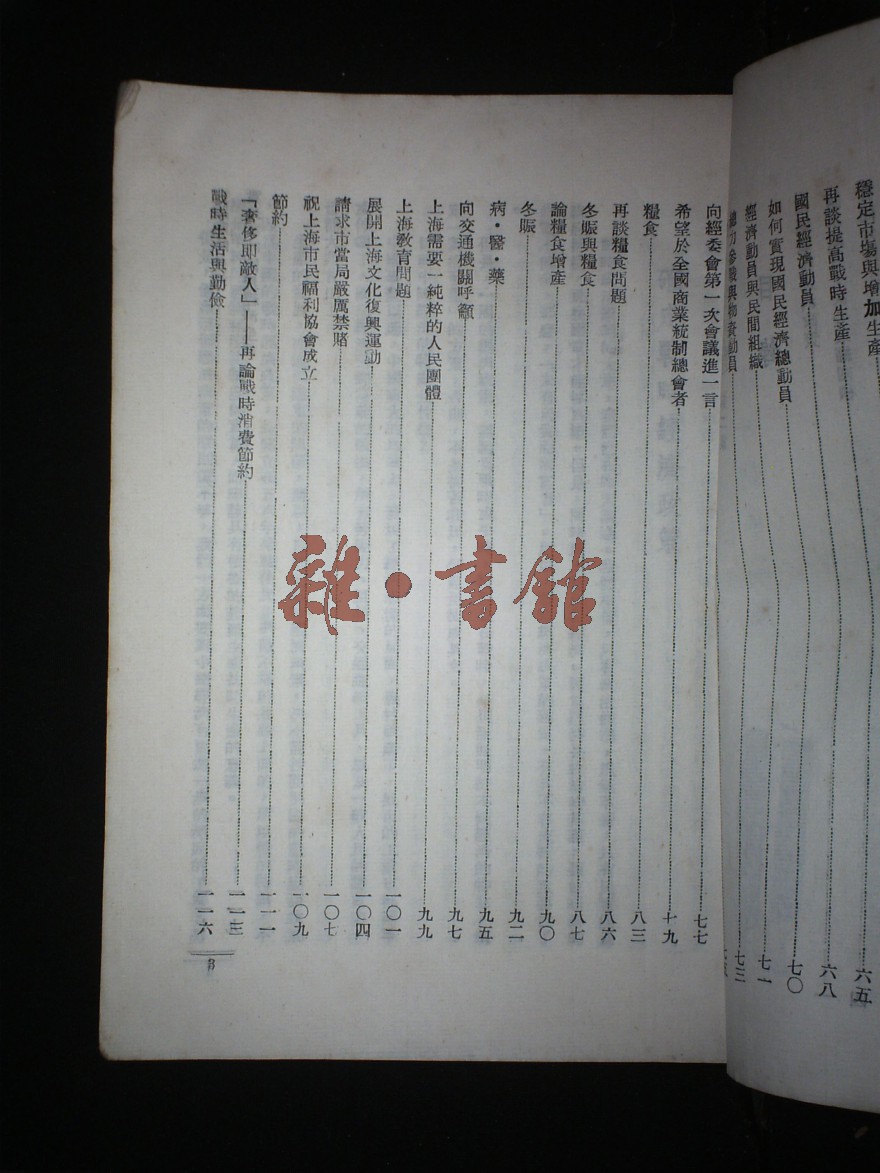 穩定市場與增加生產……六五
再談提高戰時生產……六八
國民經濟動員……七〇
如何實現國民經濟總動員……七一
經濟動員與民間組織……七三
力參戰與物資動員……
向經委會第一次會議進一言……七七
希望於全國商業統制總會者……十九
糧食……八三
再談糧食問題……八六
冬賑與糧食……八七
論糧食增產……九〇
冬賑……九二
病·醫·藥……九五
向交通機關呼籲……九七
上海需要一純粹的人民團體……九九
上海教育問題……一〇一
展開上海文化復興運動……一〇四
請求市當局嚴厲禁賭……一〇七
祝上海市民福利協會成立……一〇九
節約……一一一
「奢侈即敵人」——再論戰時消費節約……一一三
戰時生活與勤儉……一一六
3
雜·書館